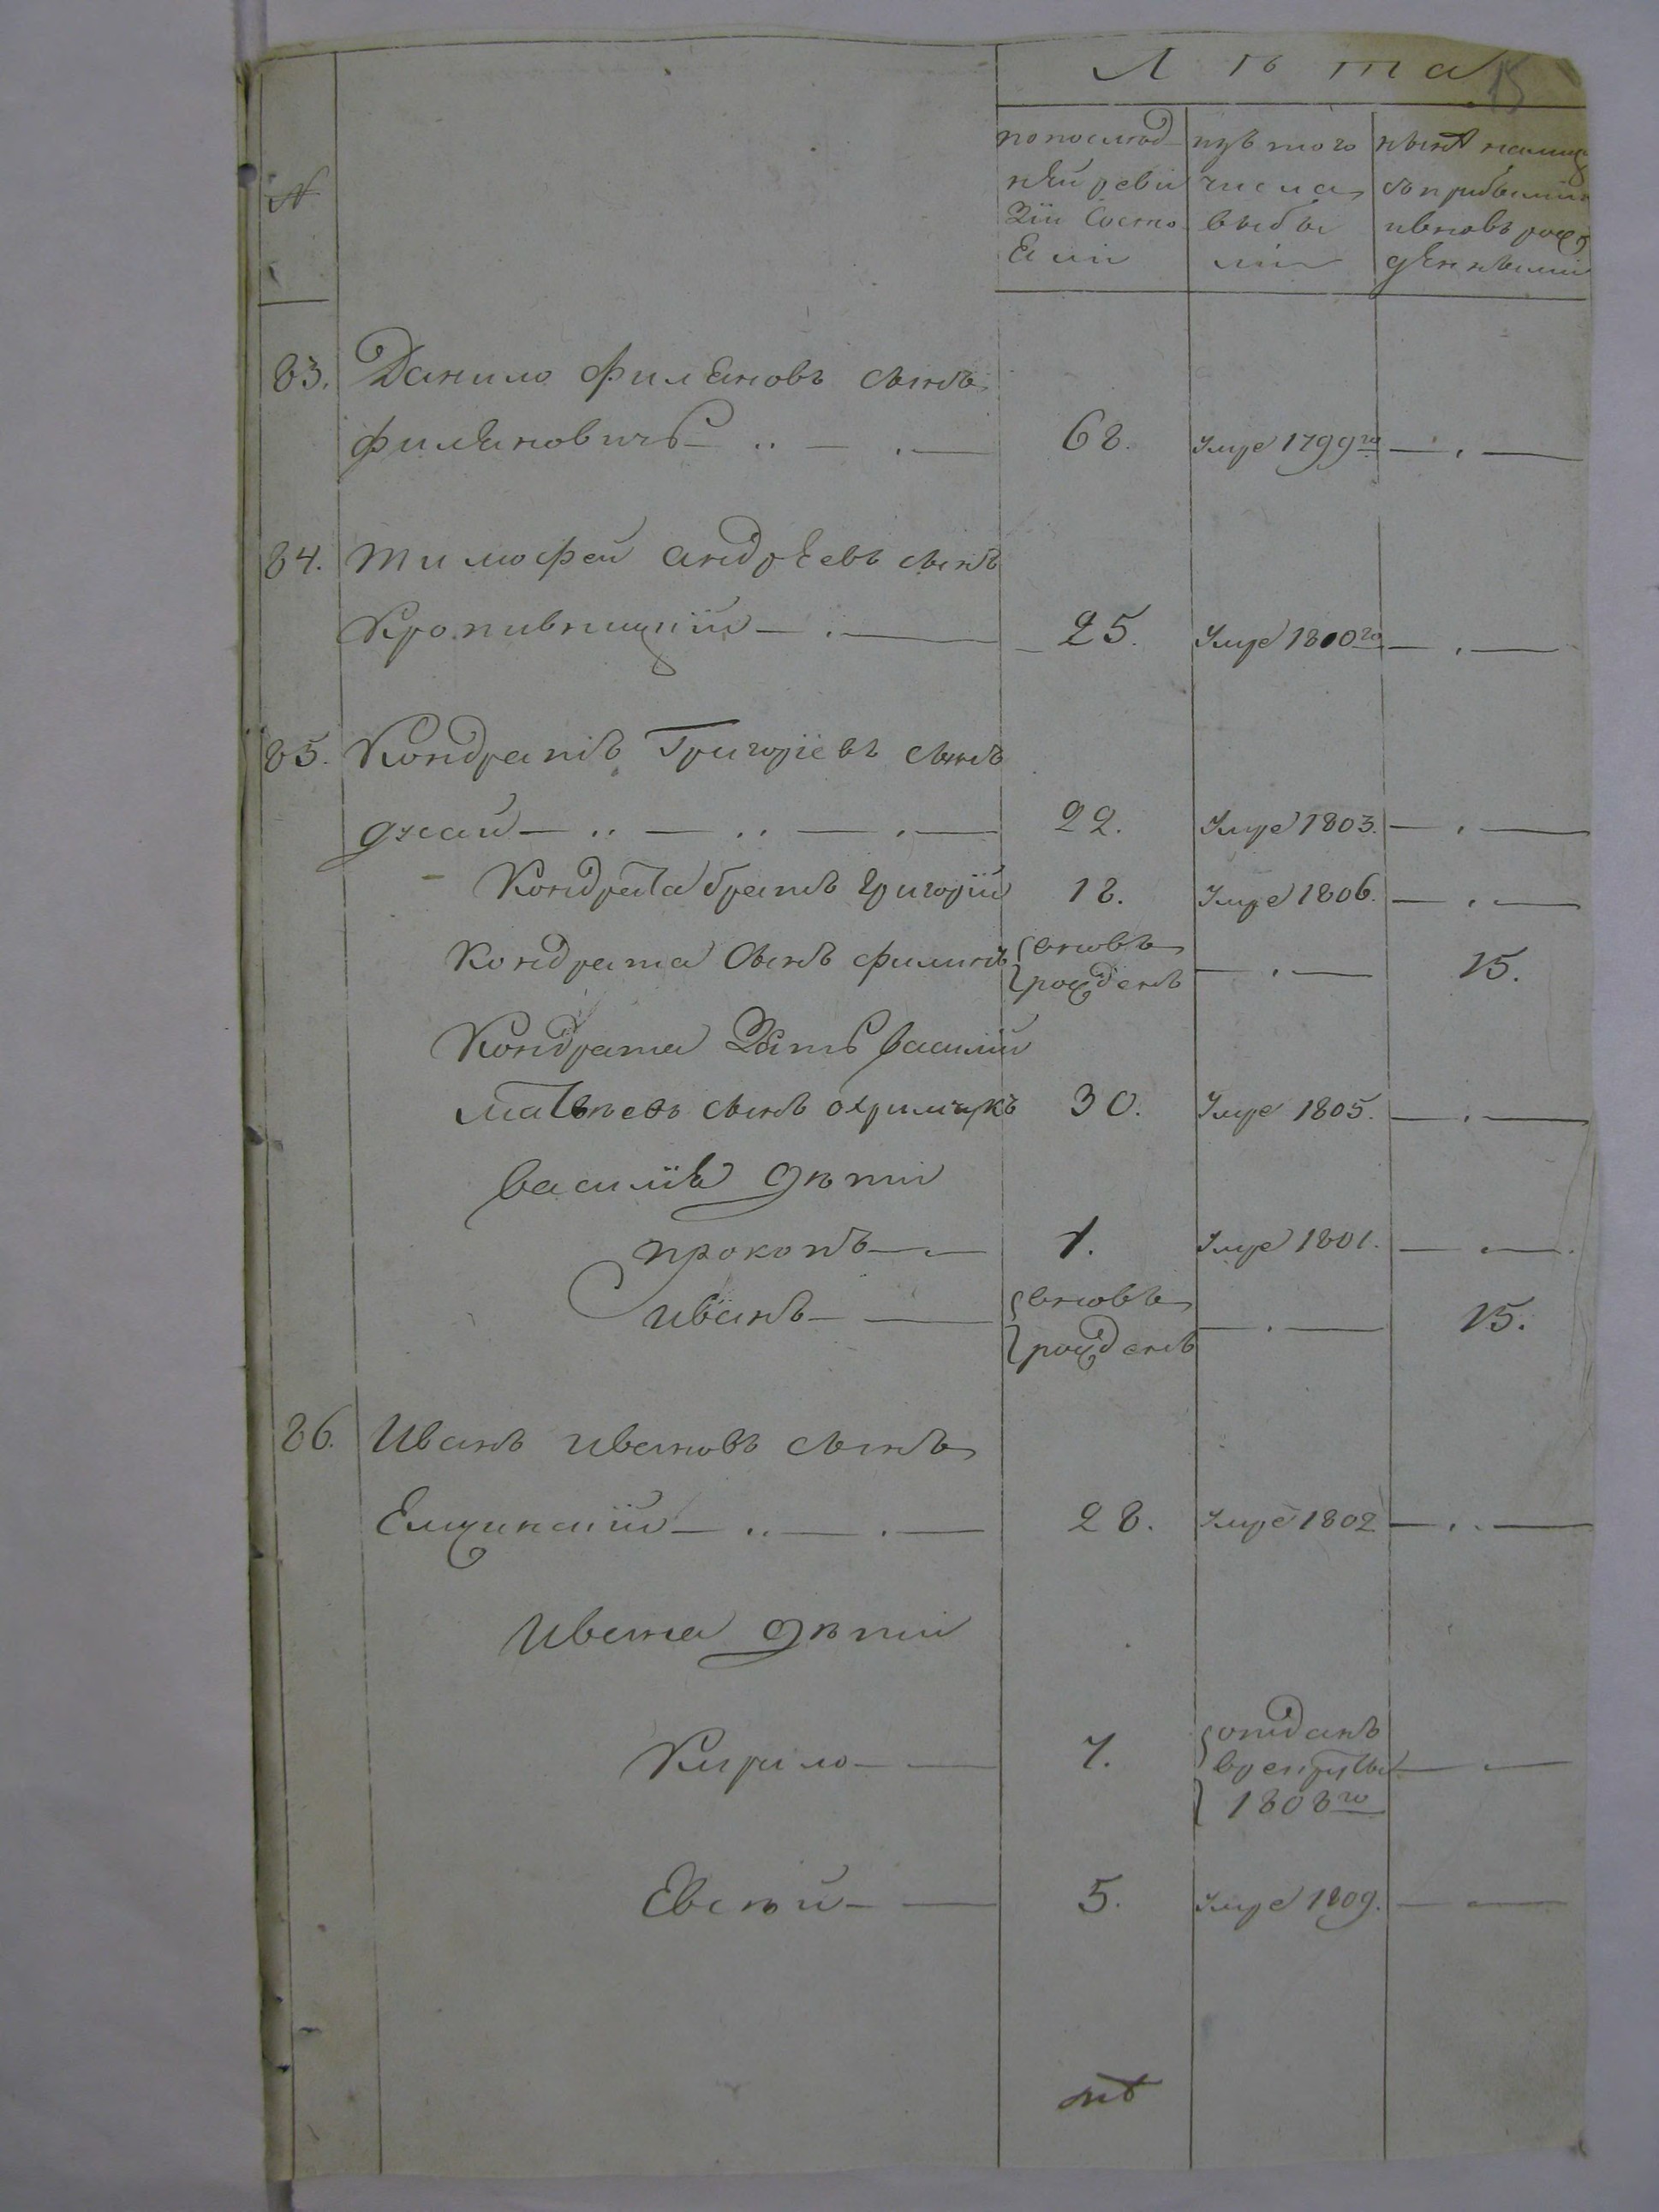 Лѣта
15
№
по послѣд
ней реви
зіи состо
яли
изъ того
числа
выбы
ли
нынѣ налицо
съ прибылими
и вновь рож
денными
83. Данило Филяновъ сынъ
Филяновичъ 68. Умре 1799го
84. Тимофей Андреевъ сынъ
Кропивницкий 25. Умре 1800го
85. Кондратъ Григоріевъ сынъ
22. Умре 1803.
Кондрата братъ Григорій 18. Умре 1806.
Кондрата сынъ Филипъ вновь рожденъ 15.
Кондрата зять Василий
Матвѣевъ сынъ Охримчукъ 30. Умре 1805.
Василія дѣти
Прокопъ 1. Умре 1801.
Иванъ вновь рожденъ 15.
86. Иванъ Ивановъ сынъ
28. Умре 1802
Ивана дѣти
Кирило 7. отданъ
в рекруты
1808го
Евсѣй 5. Умре 1809.